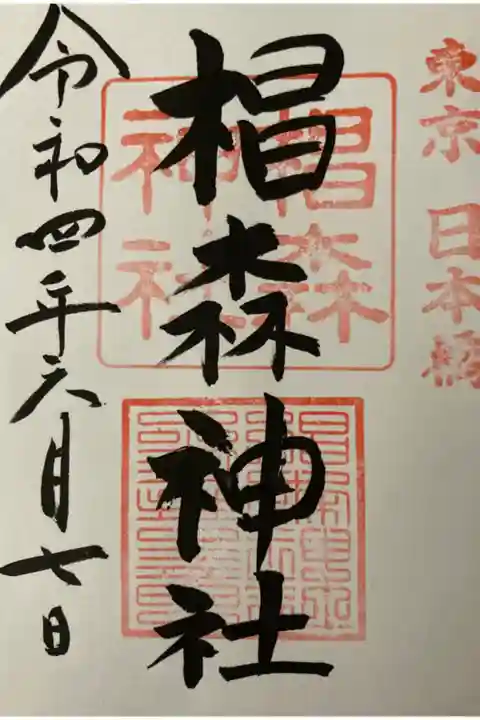 東京 日本橋
椙森神社
椙森神社
令和四年六月七日